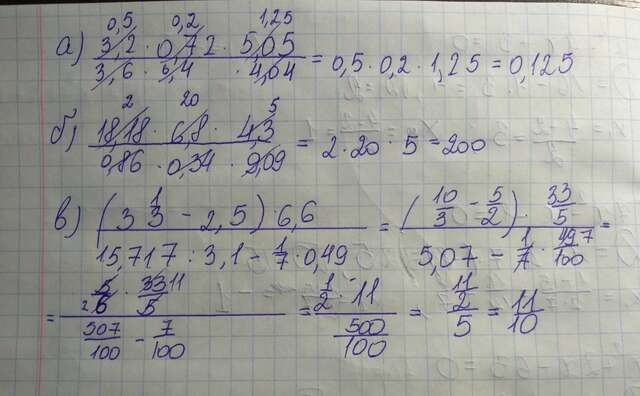 0,5 0,2 1,25
а) 3,2 · 0,72 · 5,05 / 3,6 · 6,4 · 4,04 = 0,5 · 0,2 · 1,25 = 0,125
2 20 5
б) 18,18 · 6,8 · 4,3 / 0,86 · 0,34 · 9,09 = 2 · 20 · 5 = 200
в) (3 1/3 - 2,5) · 6,6 / 15,717 : 3,1 - 1/7 · 0,49 = (10/3 - 5/2) · 33/5 / 5,07 - 1/7 · 49 7/100 =
= 5/2 6 · 33 11/5 / 507/100 - 7/100 = 1/2 · 11 / 500/100 = 11/2 / 5 = 11/10